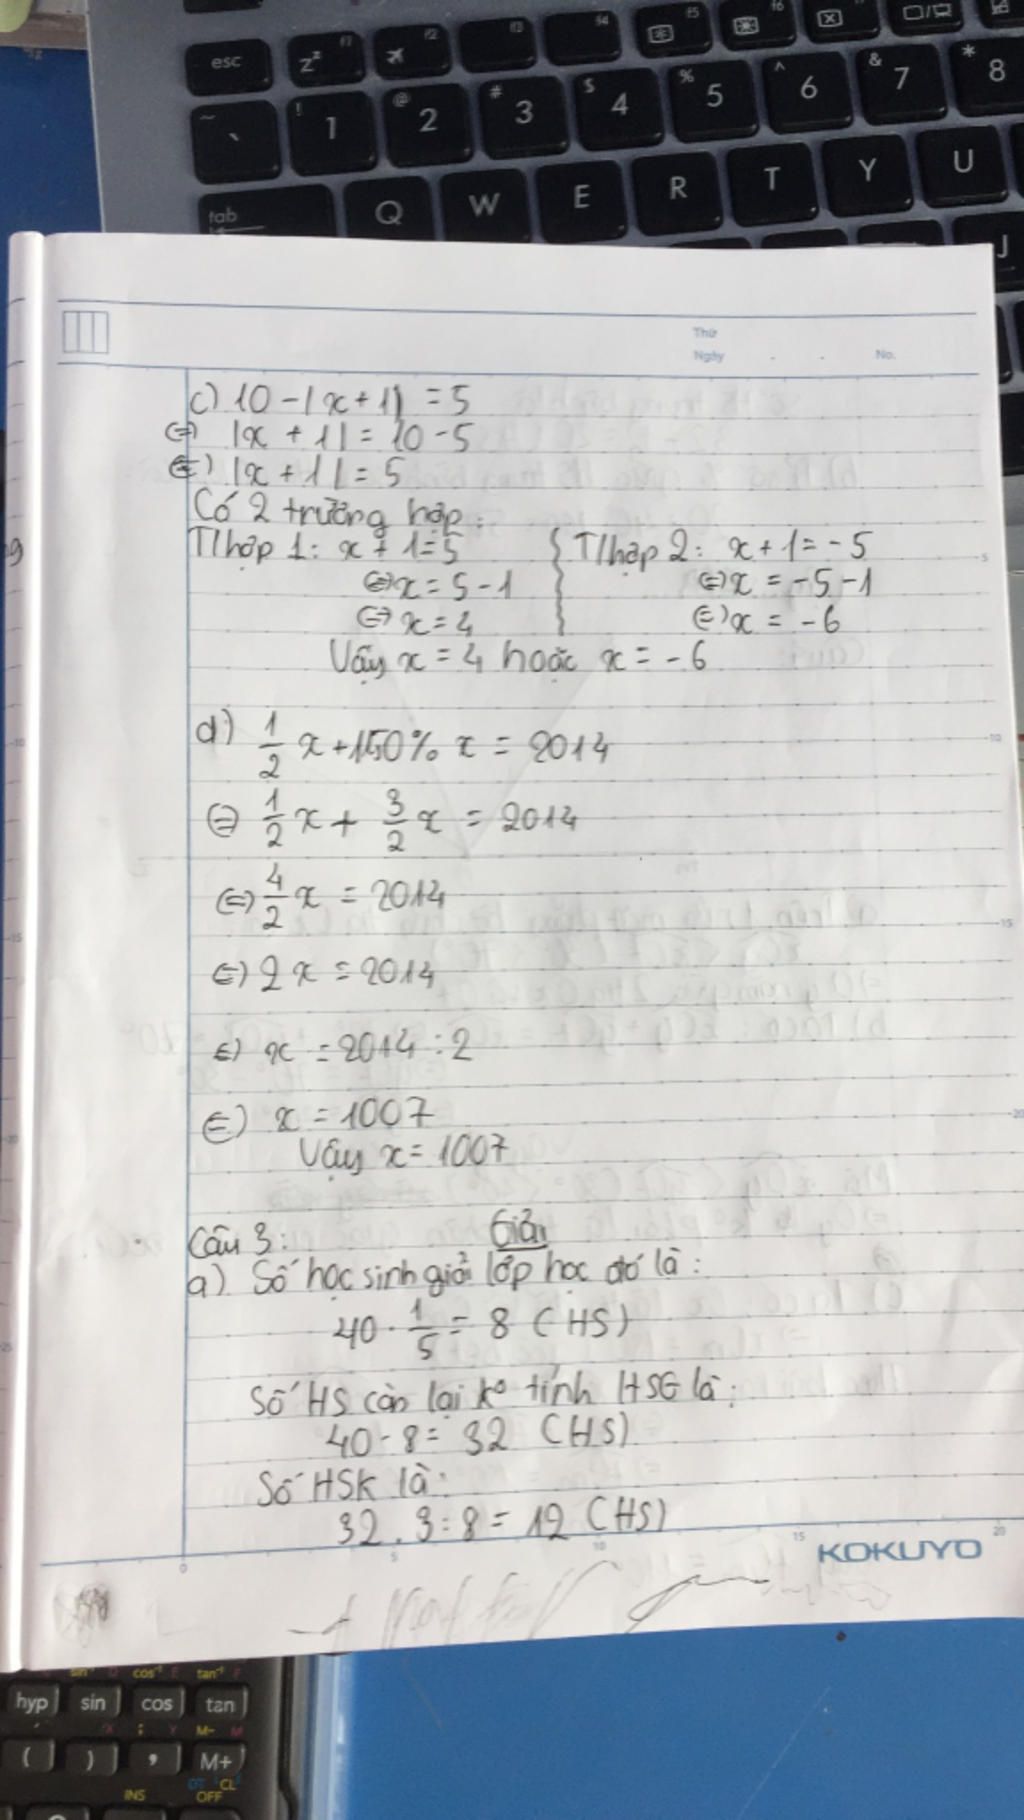 esc
zᶻ f1
f2
f3
f4
f5
f6
~ `
! 1
@ 2
# 3
$ 4
% 5
^ 6
& 7
* 8
tab Q W E R T Y U
J
Thứ
Ngày . . No.
c) 10 - |x + 1| = 5
⇔ |x + 1| = 10 - 5
⇔ |x + 1| = 5
Có 2 trường hợp:
T/hợp 1: x + 1 = 5
⇔ x = 5 - 1
⇔ x = 4
T/hợp 2: x + 1 = - 5
⇔ x = -5 - 1
⇔ x = -6
Vậy x = 4 hoặc x = - 6
d) 1/2 x + 150% x = 2014
⇔ 1/2 x + 3/2 x = 2014
⇔ 4/2 x = 2014
⇔ 2x = 2014
⇔ x = 2014 : 2
⇔ x = 1007
Vậy x = 1007
Câu 3: Giải
a) Số học sinh giỏi lớp học đó là:
40 . 1/5 = 8 (HS)
Số HS còn lại kº tính HSG là:
40 - 8 = 32 (HS)
Số HSK là:
32 . 3 : 8 = 12 (HS)
0 5 10 15 20
KOKUYO
sin⁻¹ D cos⁻¹ E tan⁻¹ F
hyp sin cos tan
X ; Y M- M
( ) , M+
INS
DT CL
OFF